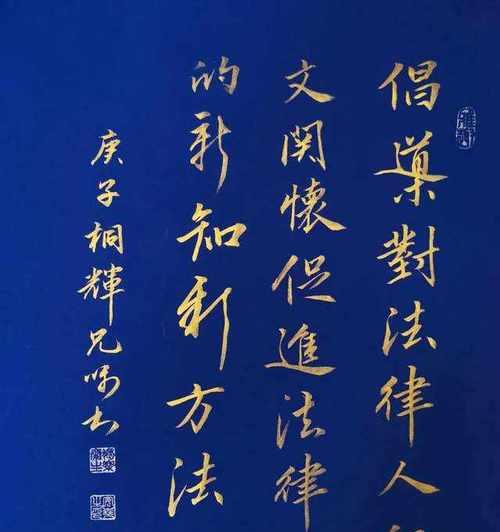 倡導對法律人
文関懷促進法律
的新知新方法
庚子桐輝兄囑書